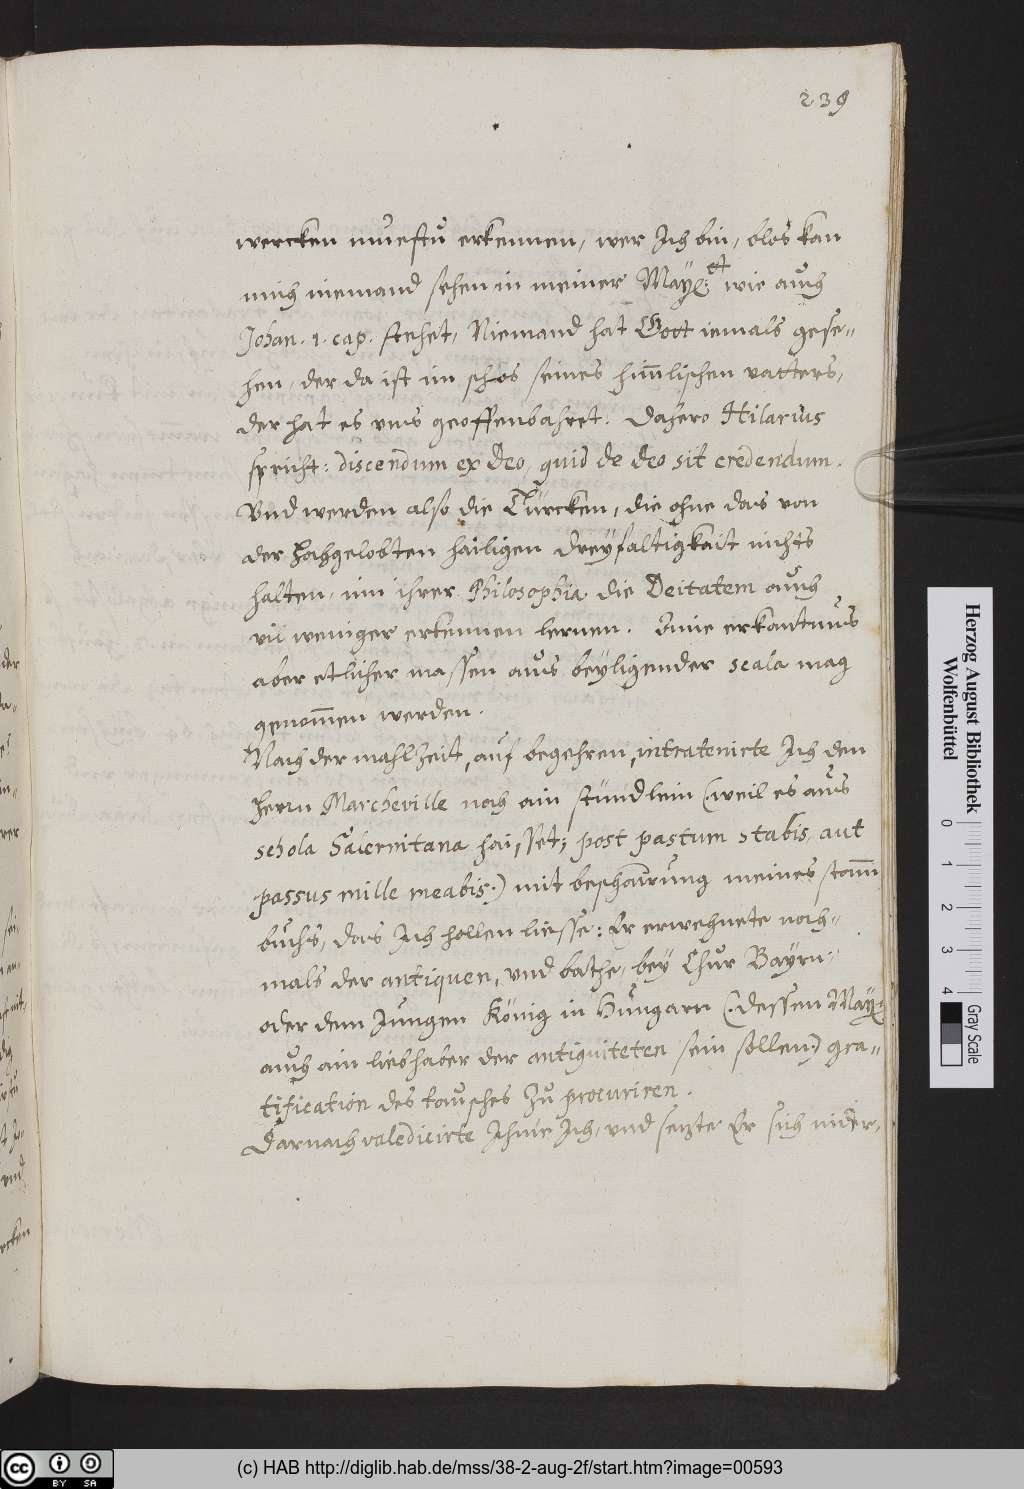 239
wercken muestu erkennen, wer Ich bin, blos kan
mich niemand sehen in meiner Mayē: et wie auch
Johan. 1. cap. stehet, Niemand hat Gott iemals gese-
hen, der da ist im schos seines him̄lischen vatters,
der hat es vns geoffenbahret. Dahero Hilarius
spricht: discendum ex Deo, quid de Deo sit credendum.
Vnd werden also die Türcken, die ohne das von
der hochgelobten hailigen Dreyfaltigkait nichts
halten, inn ihrer Philosophia die Deitatem auch
vil weniger erkennen lernen. Eine erkantnus
aber etlicher massen aus beyligender scala mag
genom̄en werden.
Nach der mahlzeit, auf begehren, intratenirte Ich den
Herrn Marcheville noch ain stündlein (weil es aus
schola Salernitana haisset; post pastum stabis, aut
passus mille meabis:) mit beschaurung meines stam̄
buchs, das Ich hollen liesse: Er erwehnete noch-
mals der antiquen, vnd bathe, bey Chur Bayrn,
oder dem Jungen König in Hungarn (: dessen May:
auch ain liebhaber der antiquiteten sein sollen:) gra-
tification des tausches zu procuriren.
Darnach valedicirte Ihme Ich, vnd sezte Er sich nider,
Herzog August Bibliothek
Wolfenbüttel
0 1 2 3 4
Gray Scale
cc BY SA
(c) HAB http://diglib.hab.de/mss/38-2-aug-2f/start.htm?image=00593